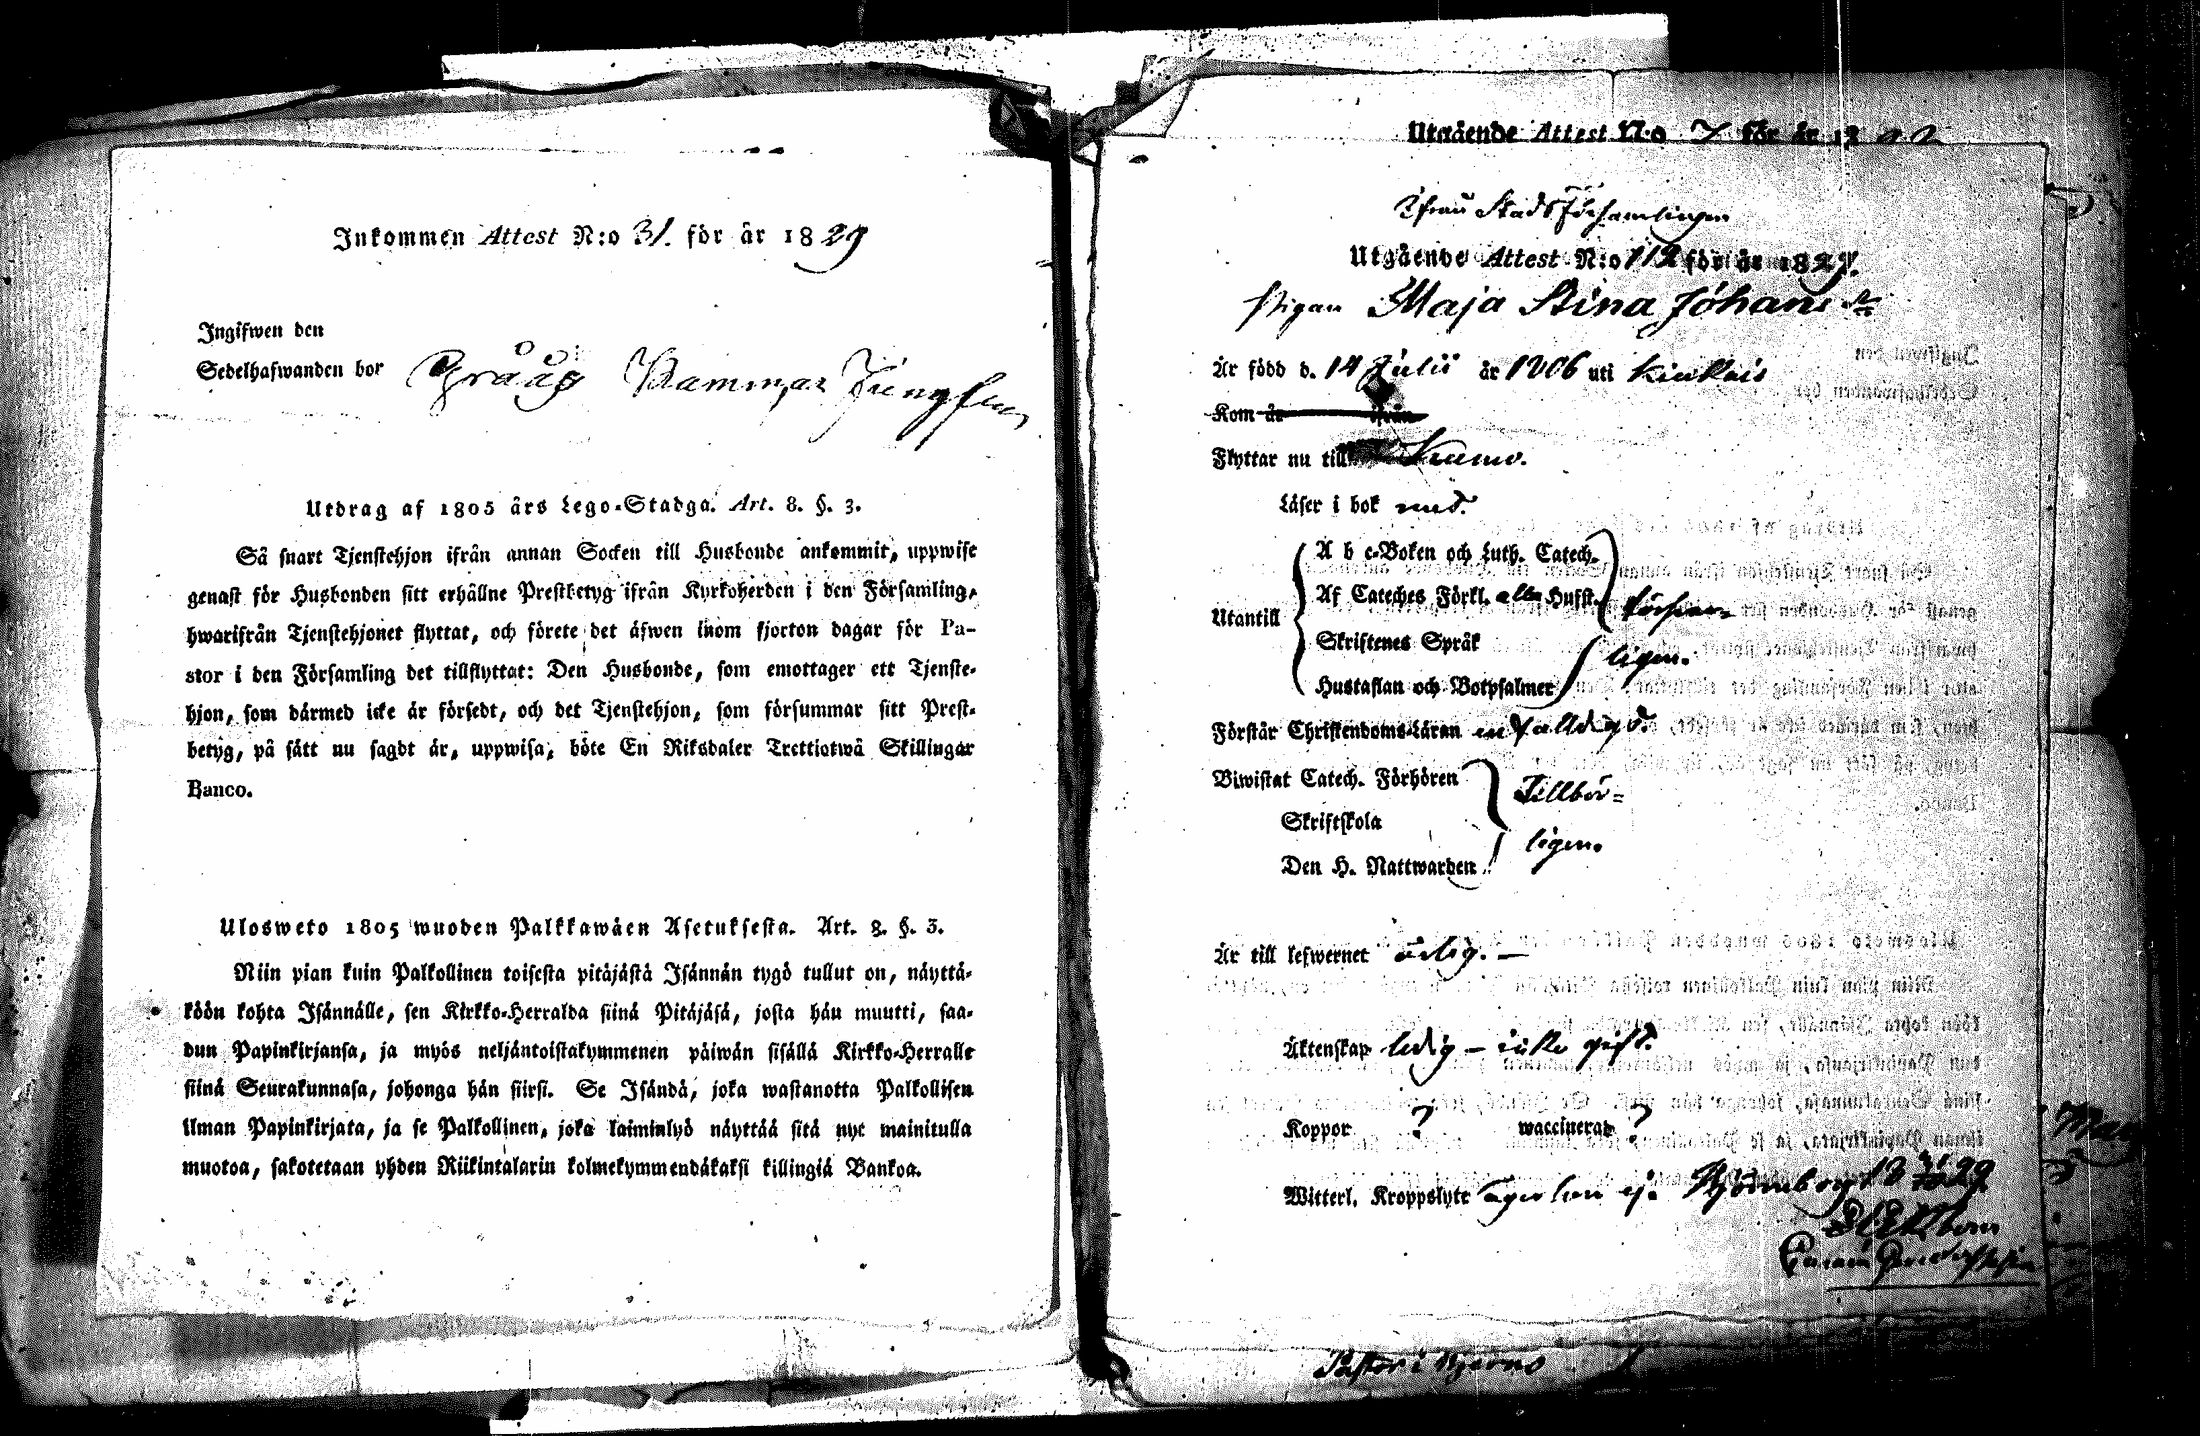 Inkommen Attest N:o 31. för år 1829
Ingifwen den
Sedelhafwanden bor Gråås Kammar Jungfru
Utdrag af 1805 års Lego-Stadga. Art. 8. §. 3.
Så snart Tjenstehjon ifrån annan Socken till Husbonde ankommit, uppwise
genast för Husbonden sitt erhållne Prestbetyg ifrån Kyrkoherden i den Församling,
hwarifrån Tjenstehjonet flyttat, och förete det äfwen inom fjorton dagar för Pa-
stor i den Församling det tillflyttat: Den Husbonde, som emottager ett Tjenste-
hjon, som därmed icke är försedt, och det Tjenstehjon, som försummar sitt Prest-
betyg, på sätt nu sagdt är, uppwisa, böte En Riksdaler Trettiotwå Skillingar
Banco.
Ulosweto 1805 wuoden Palkkawäen Asetuksesta. Art. 8. §. 3.
Niin pian kuin Palkollinen toisesta pitäjästä Isännän tygö tullut on, näyttä-
köön kohta Isännälle, sen Kirkko-Herralda siinä Pitäjäsä, josta hän muutti, saa-
dun Papinkirjansa, ja myös neljäntoistakymmenen päiwän sisällä Kirkko-Herralle
siinä Seurakunnasa, johonga hän siirsi. Se Isändä, joka wastanotta Palkollisen
ilman Papinkirjata, ja se Palkollinen, joka laiminlyö näyttää sitä nyt mainitulla
muotoa, sakotetaan yhden Riikintalarin kolmekymmendäkaksi killingiä Bankoa.
Utgående Attest N:o 7 för år 18
ifrån Stads Församlingen
Utgående Attest N:o 112 för år 1829.
Pigan Maja Stina Johans dr
Är född d. 14 Julii år 1806 uti Kiukais
Kom år ifrån
Flyttar nu till Kumo.
Läser i bok med.
Utantill
A b c-Boken och Luth. Catech.
Af Cateches Förkl. alla Hufst. försvar-
Skriftenes Språk ligen.
Hustaflan och Botpsalmer
Förstår Christendoms-Läran
Biwistat Catech. Förhören Tillbör-
Skriftskola
ligen.
Den H. Nattwarden
Är till lefwernet ärlig. —
Äktenskap ledig – icke gift.
Koppor ? waccinerad ?
Witterl. Kroppslyte äger hon ej. Björneborg 13 29
Pastor i Bjerno